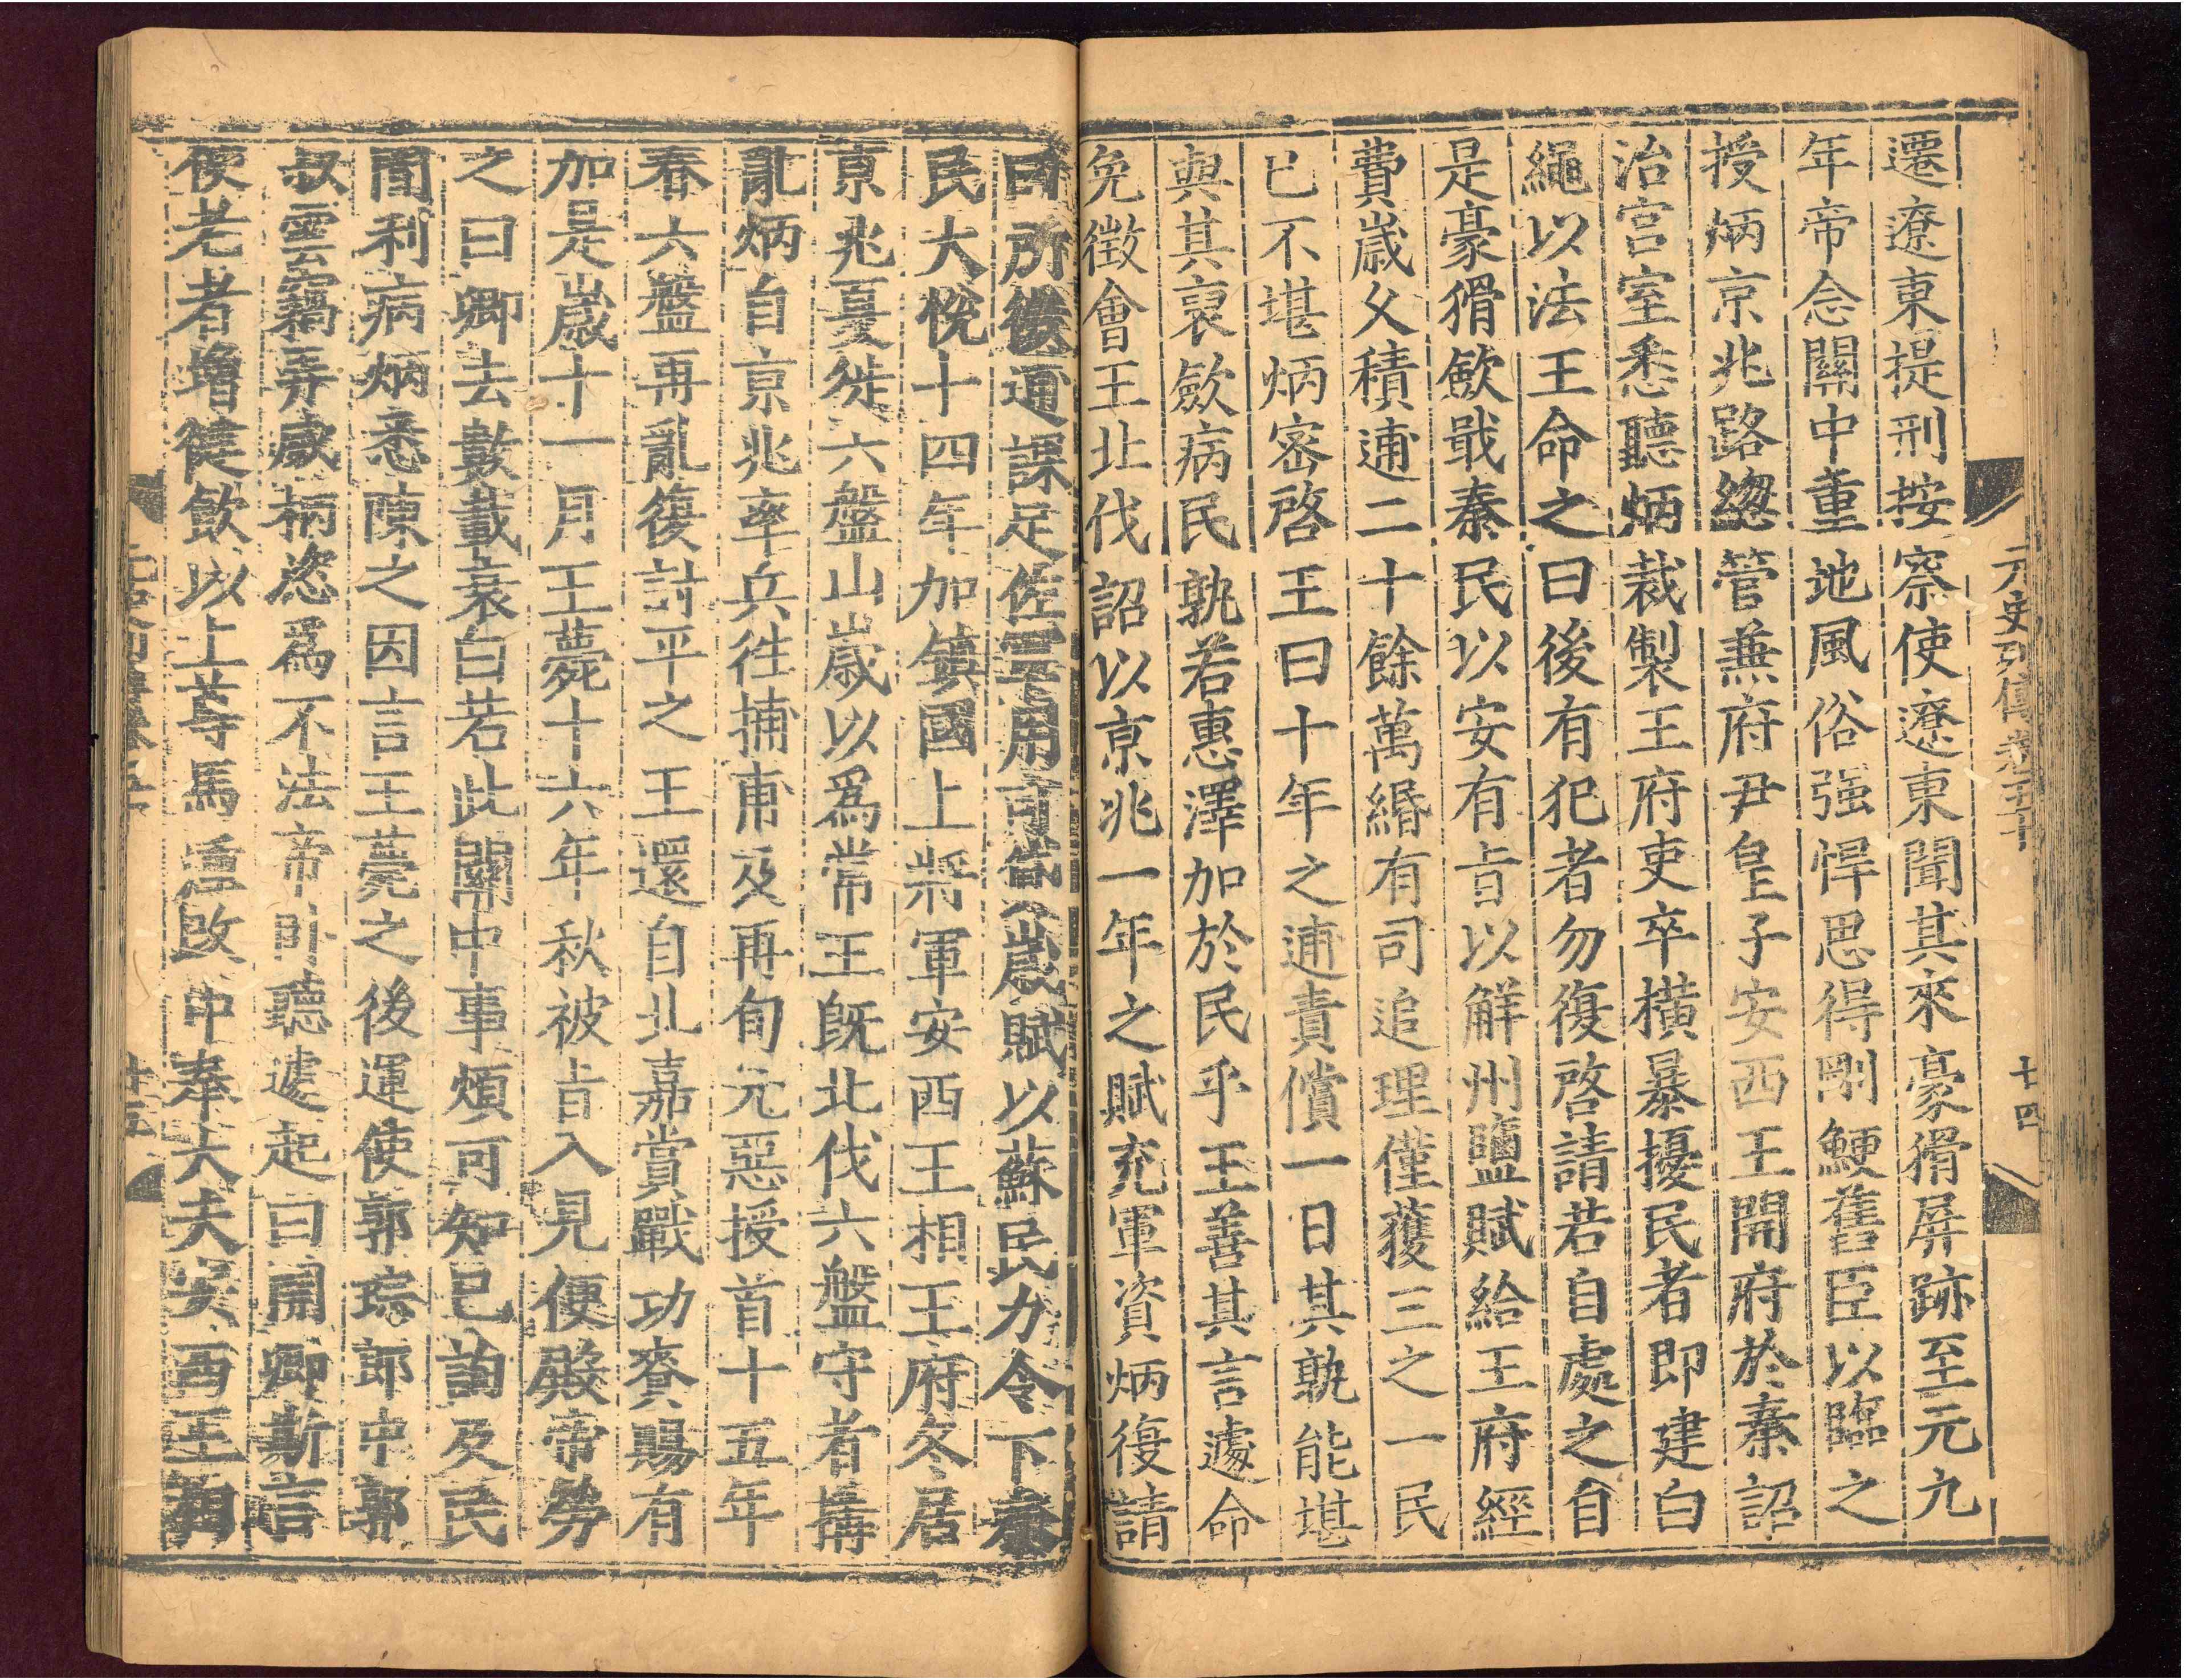 元史列傳卷五十
十四
遷遼東提刑按察使遼東聞其來豪猾屏跡至元九
年帝念關中重地風俗强悍思得剛鯁舊臣以臨之
授炳京兆路緫管兼府尹皇子安西王開府於秦詔
治宫室悉聽炳裁製王府吏卒橫暴擾民者即建白
繩以法王命之曰後有犯者勿復啓請若自處之自
是豪猾歛戢秦民以安有㫖以觧州鹽賦給王府經
費歲乆積逋二十餘萬緡有司追理僅獲三之一民
已不堪炳宻啓王曰十年之逋責償一日其孰能堪
與其裒歛病民孰若惠澤加於民乎王善其言遽命
免徵會王北伐詔以京兆一年之賦充軍資炳復請
曰所徵逋課足佐軍用可貸歲賦以蘇民力令下秦
民大悅十四年加鎮國上將軍安西王相王府冬居
京兆夏徙六盤山歲以爲常王旣北伐六盤守者搆
亂炳自京兆率兵往捕甫及再旬元惡授首十五年
春六盤再亂復討平之王還自北嘉賞戰功賚賜有
加是歲十一月王薨十六年秋被㫖入見便殿帝勞
之曰卿去數載衰白若此關中事煩可知已詢及民
間利病炳悉陳之因言王薨之後運使郭琮郎中郭
叔雲竊弄威柄恣爲不法帝卧聽遽起曰聞卿斯言
使老者增健飲以上尊馬湩改中奉大夫安西王相